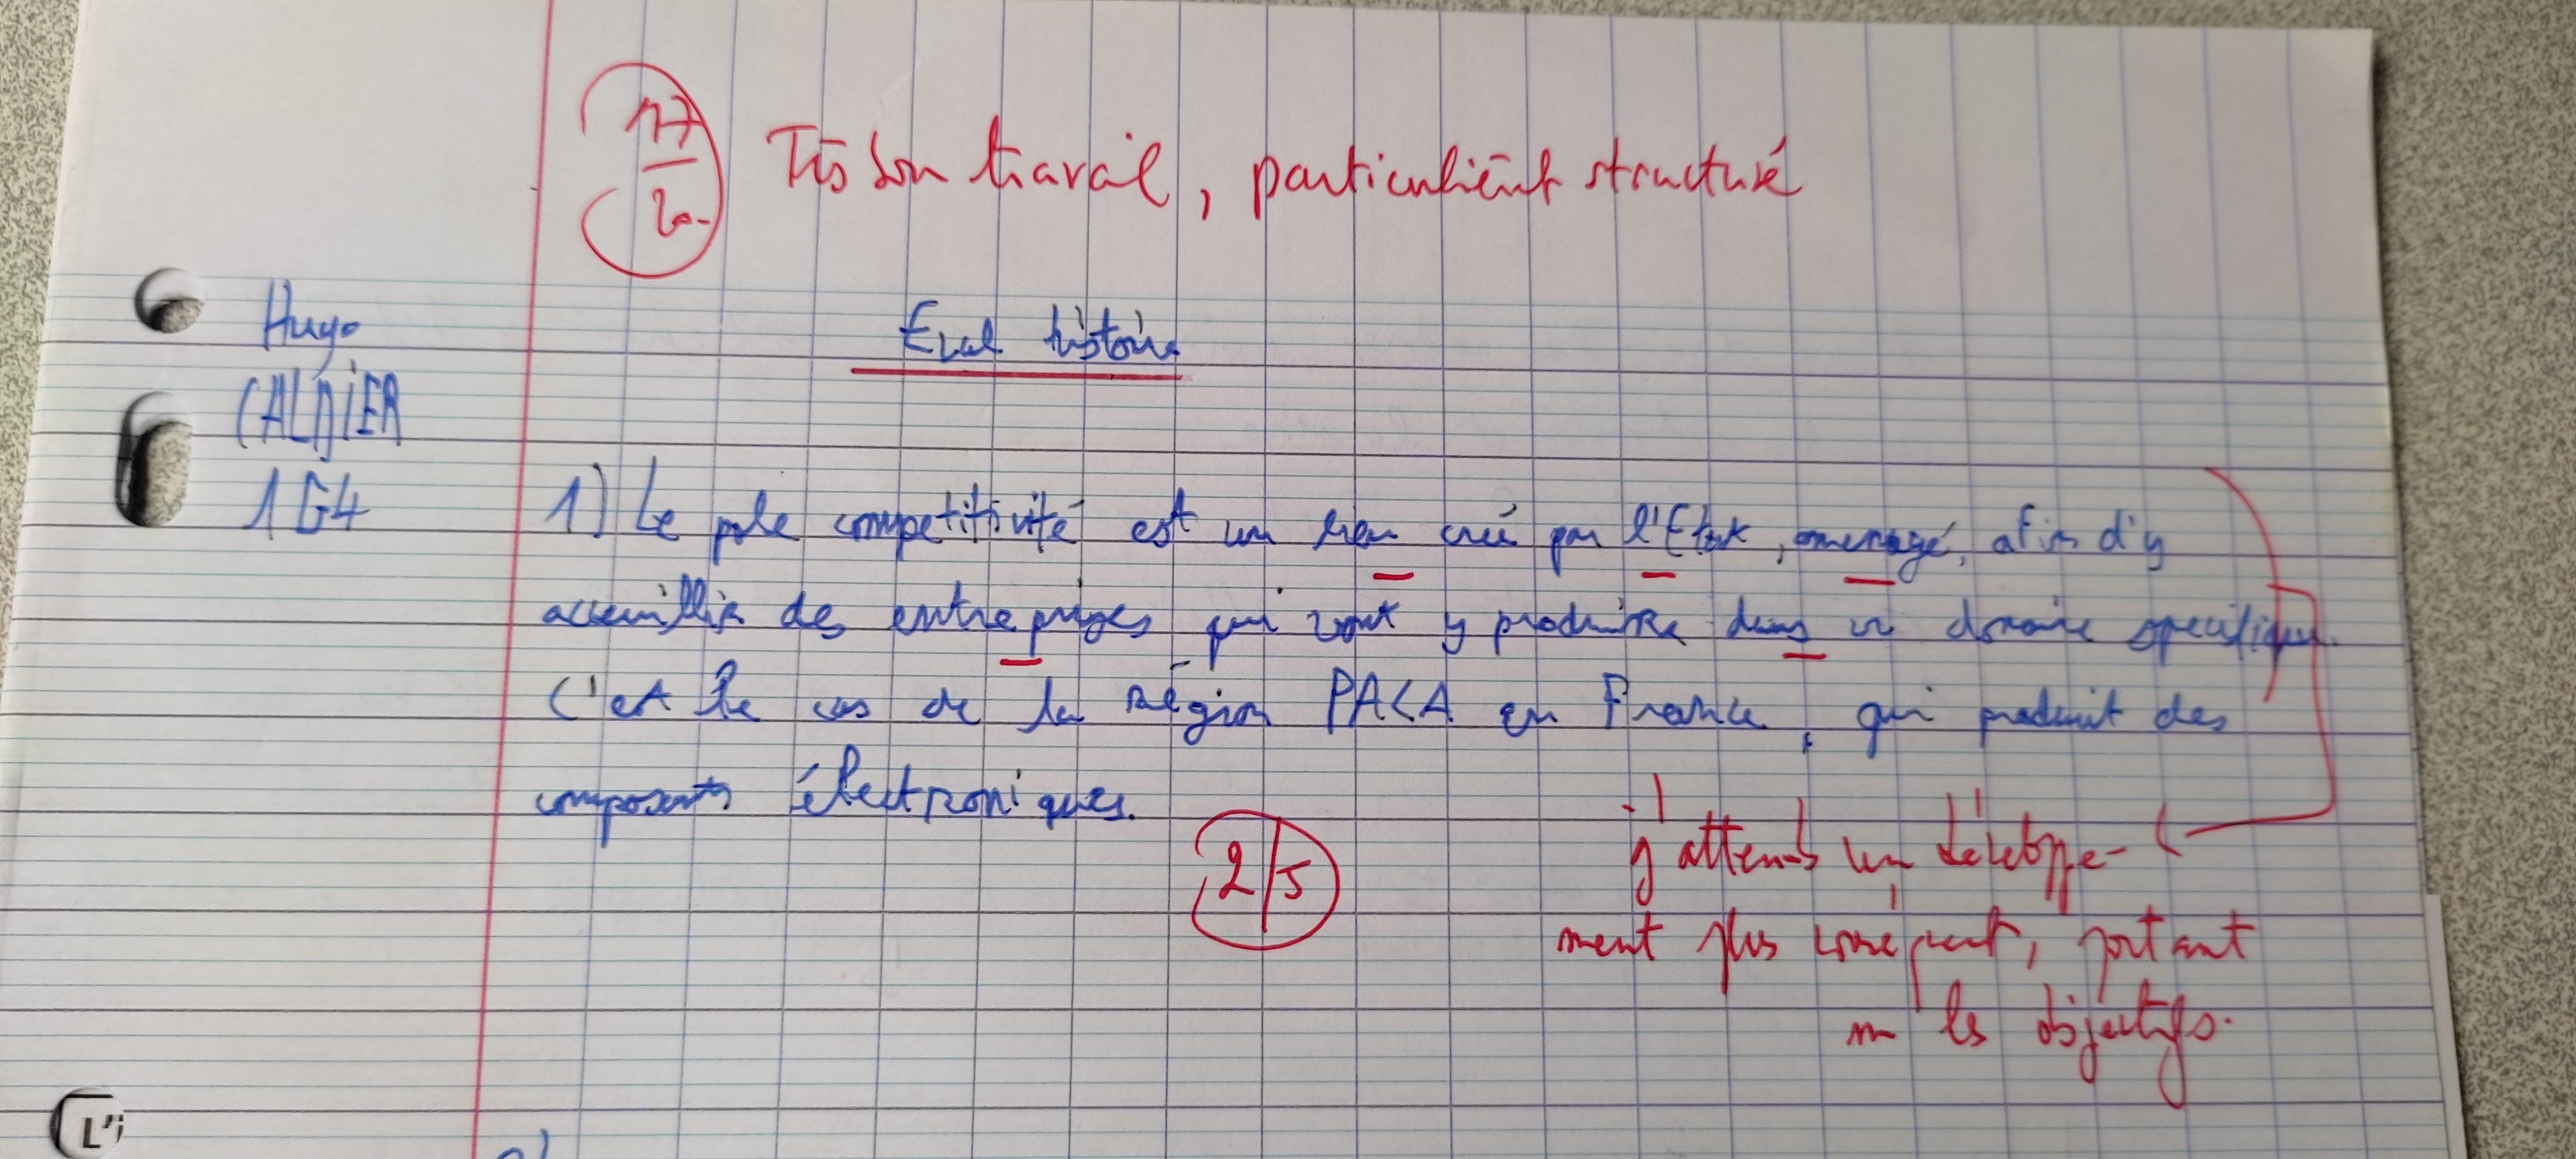 17
20
Très bon travail, particulièrt structuré
Hugo
Eval histoire
CALDIER
1G4
1) Le pole competitivité est un lieu créé par l'Etat, amenagé, afin d'y
accueillir des entreprises qui vont y produire dans un domaine specifique.
C'est le cas de la Région PACA en France, qui produit des
composants électroniques.
2/5
j'attends un développe-
ment plus conséquent, portant
sur les objectifs.